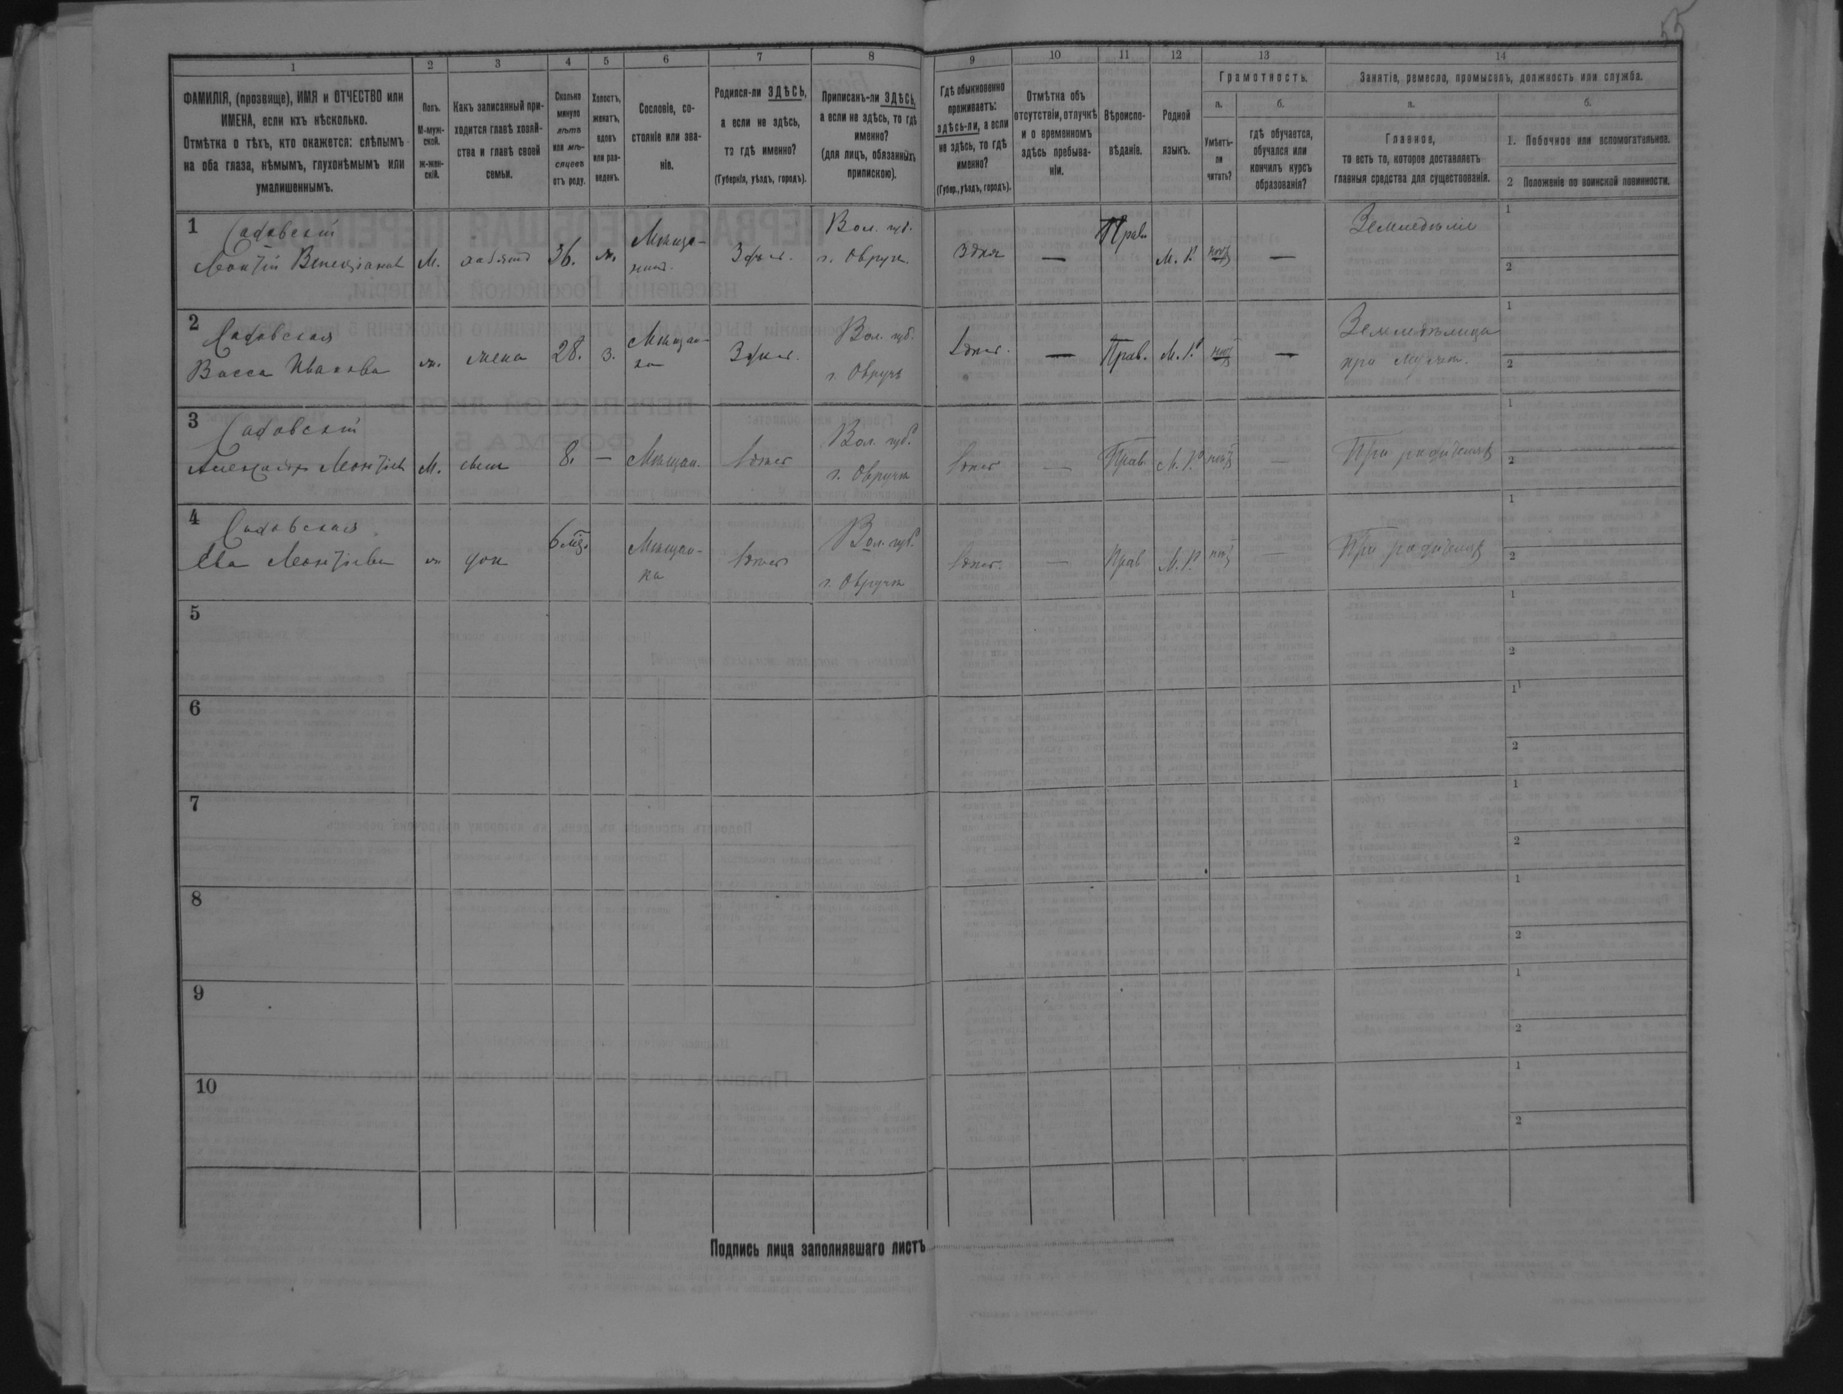 55
1
2
3
4
5
6
7
8
9
10
11
12
13
14
ФАМИЛІЯ, (прозвище), ИМЯ и ОТЧЕСТВО или
ИМЕНА, если ихъ нѣсколько.
Отмѣтка о тѣхъ, кто окажется: слѣпымъ
на оба глаза, нѣмымъ, глухонѣмымъ или
умалишеннымъ.
Полъ.
М-муж-
ской.
Ж-жен-
скій.
Какъ записанный при-
ходится главѣ хозяй-
ства и главѣ своей
семьи.
Сколько
минуло
лѣтъ
или мѣ-
сяцевъ
отъ роду.
Холостъ,
женатъ,
вдовъ
или раз-
веденъ.
Сословіе, со-
стояніе или зва-
ніе.
Родился-ли ЗДѢСЬ,
а если не здѣсь,
то гдѣ именно?
(Губернія, уѣздъ, городъ).
Приписанъ-ли ЗДѢСЬ,
а если не здѣсь, то гдѣ
именно?
(для лицъ, обязанныхъ
припискою).
Гдѣ обыкновенно
проживаетъ:
здѣсь-ли, а если
не здѣсь, то гдѣ
именно?
(Губер., уѣздъ, городъ).
Отмѣтка объ
отсутствіи, отлучкѣ
и о временномъ
здѣсь пребыва-
ніи.
Вѣроиспо-
вѣданіе.
Родной
языкъ.
Грамотность.
а.
б.
Умѣетъ-
ли
читать?
гдѣ обучается,
обучался или
кончилъ курсъ
образованія?
Занятіе, ремесло, промыселъ, должность или служба.
а.
б.
Главное,
то есть то, которое доставляетъ
главныя средства для существованія.
1. Побочное или вспомогательное.
2 Положеніе по воинской повинности.
1
Садовскій
Леонтій
М.
36.
ж.
Мѣща-
нинъ
Здѣсь
Вол. губ.
г. Овручъ
здѣсь
—
Прав.
М. Р.
—
Земледѣліе
1
2
2
Садовская
Васса Иванова
ж.
жена
28.
з.
Мѣщан-
ка
Здѣсь
Вол. губ.
г. Овручъ
здѣсь
—
Прав.
М. Р.
—
Земледѣлица
при мужѣ
1
2
3
Садовскій
Александръ Леонтіев
М.
сынъ
8.
—
Мѣщан.
здѣсь
Вол. губ.
г. Овручъ
здѣсь
—
Прав.
М. Р.
—
При родителяхъ
1
2
4
Садовская
Ева Леонтіева
ж
доч
6 мѣс.
Мѣщан-
ка
здѣсь
Вол. губ.
г. Овручъ
здѣсь
—
Прав
М. Р.
—
При родителяхъ
1
2
5
1
2
6
1
2
7
1
2
8
1
2
9
1
2
10
1
2
Подпись лица заполнявшаго листъ